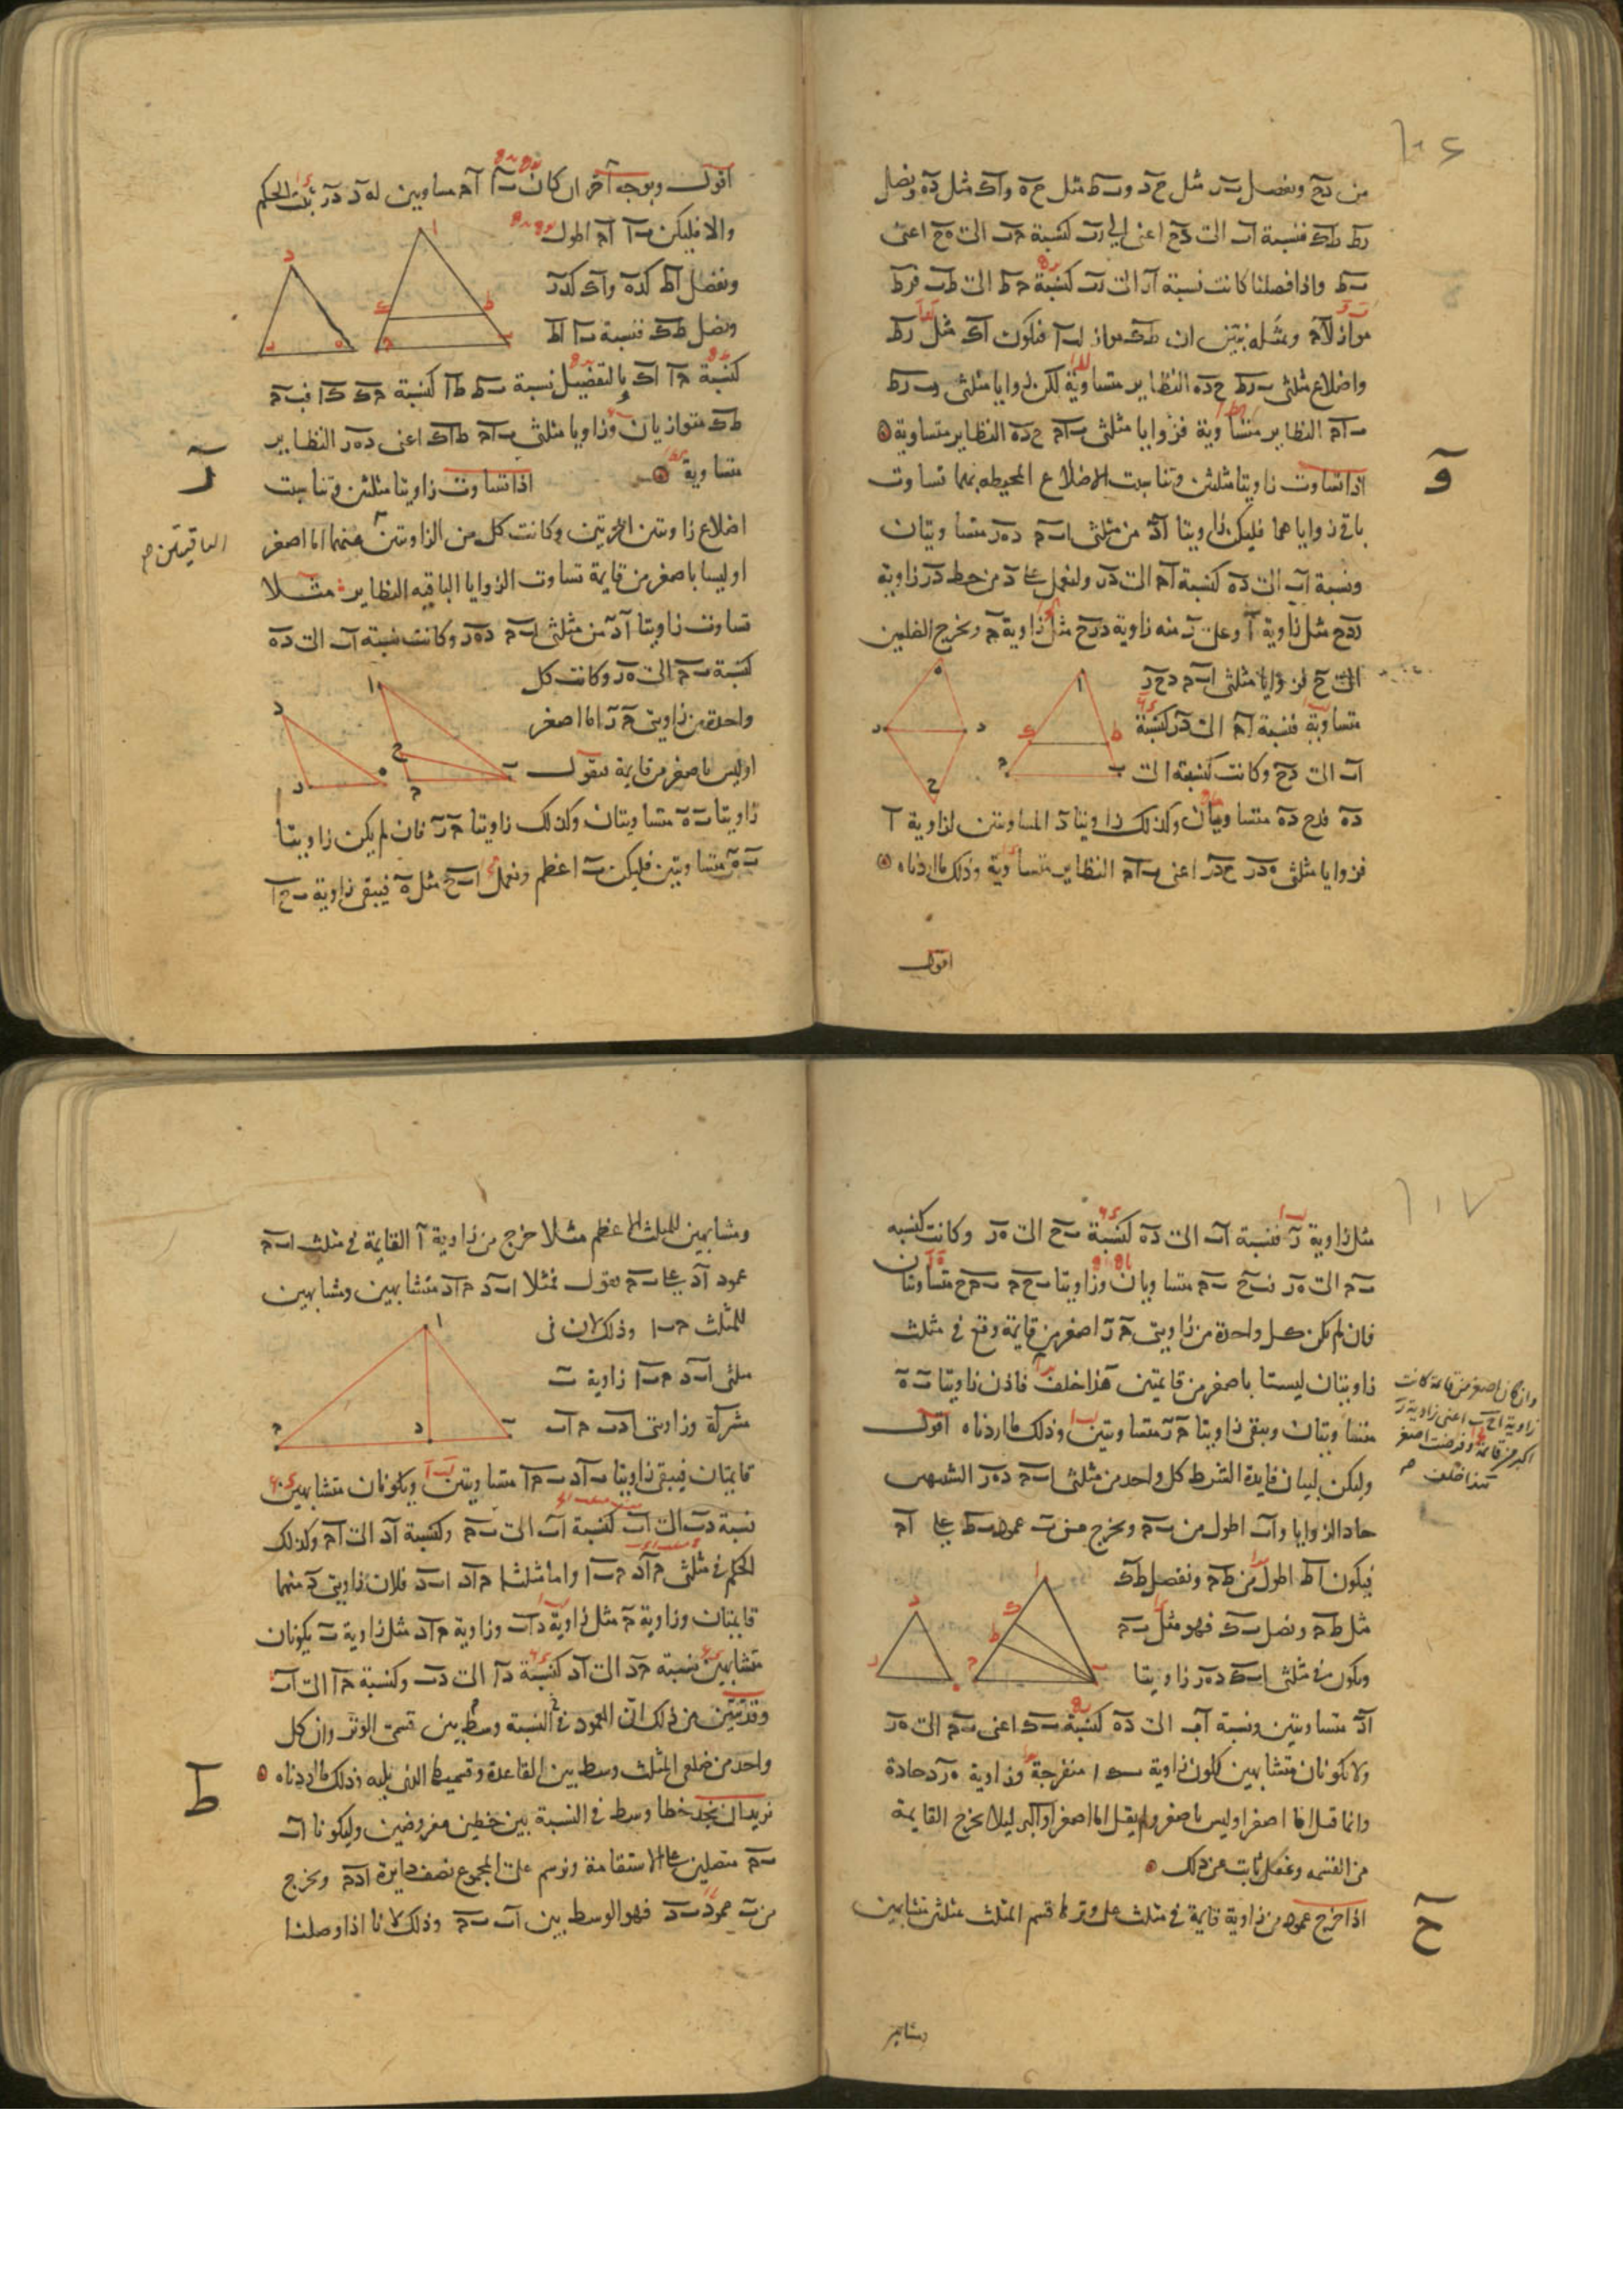 من دح ونفصل ب‍ر مثل ح‍د وب‍ط مثل ح‍ه واك مثل ده ونصل
رط طك فنسبة اب الى دح اعنى الى رب كنسبة ح‍ب الى ه‍ح اعنى
ب‍ط واذا فصلنا كانت نسبة ار الى رب كنسبة ح‍ط الى طب فرط
مواز لاح وبمثله نبين ان طك مواز لب‍ا فيكون اك مثل رط
واضلاع مثلثى ب‍رط ح‍ده النظاير متساوية لكن زوايا مثلثى ب‍رط
ب‍اح النظاير متساوية فزوايا مثلثى ب‍اح ح‍ده النظاير متساوية
و
اذا تساوت زاويتا مثلثين وتناسبت الاضلاع المحيطه بهما تساوت
باقى زواياهما فليكن زاويتا اد من مثلثى اب‍ح ده‍ر متساويتان
ونسبة اب الى ده كنسبة اح الى در ولنعمل على د من خط در زاوية
ردح مثل زاوية ا وعلى ر منه زاوية درح مثل زاوية ح ونخرج الضلعين
الى ح فزوايا مثلثى اب‍ح دح‍ر
متساوية فنسبة اح الى در كنسبة
اب الى دح وكانت كنسبة الى
ده فدح ده متساويان وكذلك زاويتا د المساويتين لزاوية ا
فزوايا مثلثى ه‍در ح‍در اعنى ب‍اح النظاير متساوية وذلك ما اردناه
اقول
اقول وبوجه آخر ان كان ب‍ا اح مساويين له‍د در ثبت الحكم
والا فليكن ب‍ا اح اطول
ونفصل اط كده واك كدر
ونصل طك فنسبة ب‍ا اط
كنسبة ح‍ا اك وبالتفضيل نسبة ب‍ط طا كنسبة ح‍ك كا فب‍ح
طك متوازيان وزوايا مثلثى ب‍اح طاك اعنى ده‍ر النظاير
متساوية
ز
اذا تساوت زاويتا مثلثين وتناسبت
اضلاع زاويتين اخريتين وكانت كل من الزاويتين منهما اما اصغر
الباقيتين صح
او ليسا باصغر من قايمة تساوت الزوايا الباقيه النظاير مثلا
تساوت زاويتا اد من مثلثى اب‍ح ده‍ر وكانت نسبة اب الى ده
كنسبة ب‍ح الى ه‍ر وكانت كل
واحدة من زاويتى ح ر اما اصغر
او ليس باصغر من قايمة نقول
زاويتا ب ه متساويتان وكذلك زاويتا ح ر فان لم يكن زاويتا
ب ه متساويتين فليكن ب اعظم ونعمل اب‍ح مثل ه فيبقى زاوية ب‍ح‍ا
مثل زاوية ر فنسبة اب الى ده كنسبة ب‍ح الى ه‍ر وكانت كنسبه
ب‍ح الى ه‍ر فب‍ح ب‍ح متساويان وزاويتا ب‍ح‍ح ب‍ح‍ح متساويتان
فان لم يكن كل واحدة من زاويتى ح ر اصغر من قايمة وقع فى مثلث
زاويتان ليستا باصغر من قايمتين هذا خلف فاذن زاويتا ب ه
متساويتان ويبقى زاويتا ح ر متساويتين وذلك ما اردناه اقول
وان كان اصغر من قايمة كانت
زاوية اح‍ب اعنى زاوية ر
اكبر من قايمة وفرضت اصغر
هذا خلف صح
وليكن لبيان فايدة الشرط كل واحد من مثلثى اب‍ح ده‍ر الشبيهين
حاد الزوايا واب اطول من ب‍ح ونخرج من ب عمود ب‍ط على اح
فيكون اط اطول من طح ونفصل طك
مثل طح ونصل ب‍ك فهو مثل ب‍ح
ويكون فى مثلثى اب‍ك ده‍ر زاويتا
اد متساويتين ونسبة اب الى ده كنسبة ب‍ك اعنى ب‍ح الى ه‍ر
ولا يكونان متشابهين لكون زاوية ب‍ك‍ا منفرجة وزاوية ه‍رد حادة
وانما قيل اما اصغر او ليس باصغر ولم يقل اما اصغر او اكبر ليلا يخرج القايمة
من القسمه
ح
اذا خرج عمود من زاوية قايمة فى مثلث على وترها قسم المثلث بمثلثين متشابهين
ومشابهين
ومشابهين للمثلث الاعظم مثلا خرج من زاوية ا القايمة فى مثلث اب‍ح
عمود اد على ب‍ح نقول فمثلثا اب‍د ح‍اد متشابهين ومشابهين
للمثلث ح‍ب‍ا وذلك لان فى
مثلثى اب‍د ح‍ب‍ا زاوية ب
مشتركة وزاويتى ادب ح‍اب
قايمتان فيبقى زاويتا ب‍اد ب‍ح‍ا متساويتين ويكونان متشابهين
نسبة دب الى اب كنسبة اب الى ب‍ح وكنسبة اد الى اح وكذلك
الحكم فى مثلثى ح‍اد ح‍ب‍ا واما مثلثا ح‍اد اب‍د فلان زاويتى د منهما
قايمتان وزاوية ح مثل زاوية داب وزاوية ح‍اد مثل زاوية ب يكونان
متشابهين نسبة ح‍د الى اد كنسبة دا الى دب وكنسبة ح‍ا الى اب
وقد تبين من ذلك ان العمود فى النسبة وسط بين قسمى الوتر وان كل
واحد من ضلعى المثلث وسط بين القاعدة وقسيمها الذى يليه وذلك ما اردناه
ط
نريد ان نجد خطا وسط فى النسبة بين خطين مفروضين وليكونا اب
ب‍ح متصلين على الاستقامة ونرسم على المجموع نصف دايرة ادح ونخرج
من ب عمود ب‍د فهو الوسط بين اب ب‍ح وذلك لانا اذا وصلنا